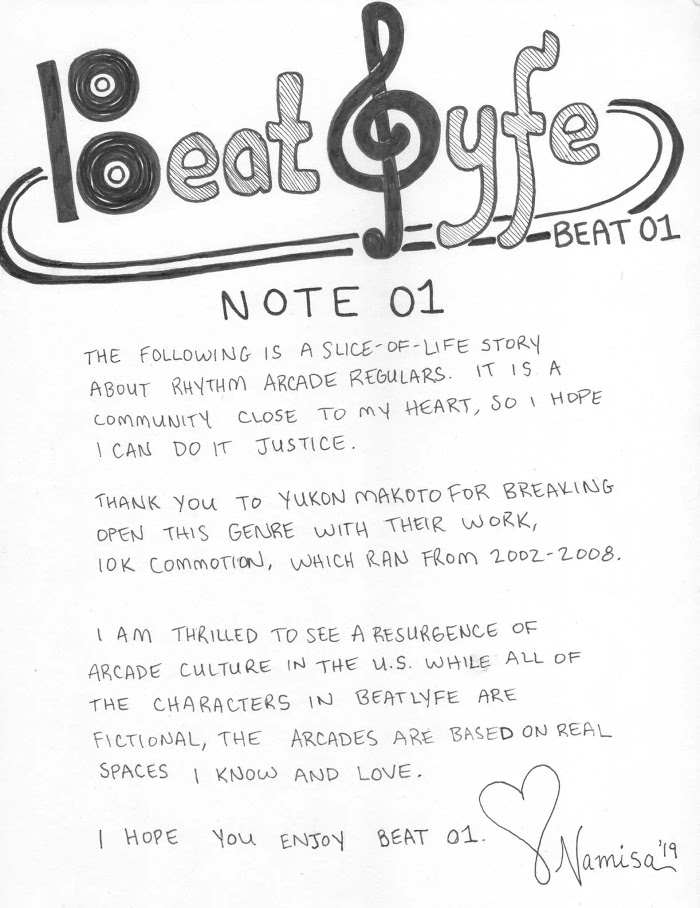 BeatLyfe
BEAT 01
NOTE 01
THE FOLLOWING IS A SLICE-OF-LIFE STORY
ABOUT RHYTHM ARCADE REGULARS. IT IS A
COMMUNITY CLOSE TO MY HEART, SO I HOPE
I CAN DO IT JUSTICE.
THANK YOU TO YUKON MAKOTO FOR BREAKING
OPEN THIS GENRE WITH THEIR WORK,
10K COMMOTION, WHICH RAN FROM 2002-2008.
I AM THRILLED TO SEE A RESURGENCE OF
ARCADE CULTURE IN THE U.S. WHILE ALL OF
THE CHARACTERS IN BEATLYFE ARE
FICTIONAL, THE ARCADES ARE BASED ON REAL
SPACES I KNOW AND LOVE.
I HOPE YOU ENJOY BEAT 01.
Namisa '19